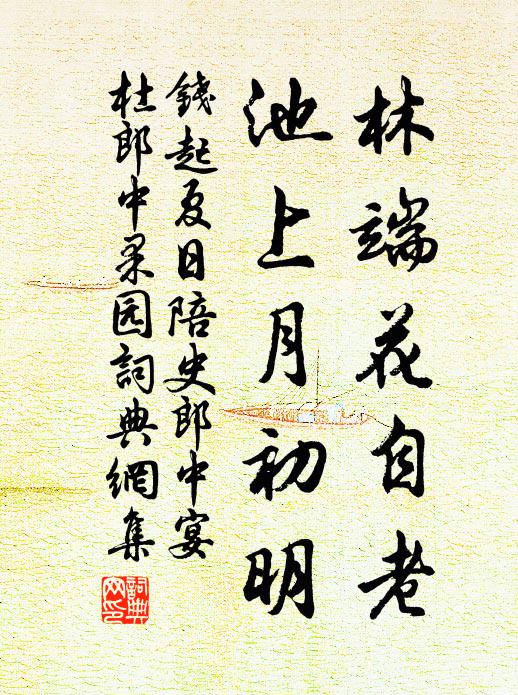 林端花自老
池上月初明
錢起夏日陪史郎中宴
杜郎中果园詞典網集
詞典
网印